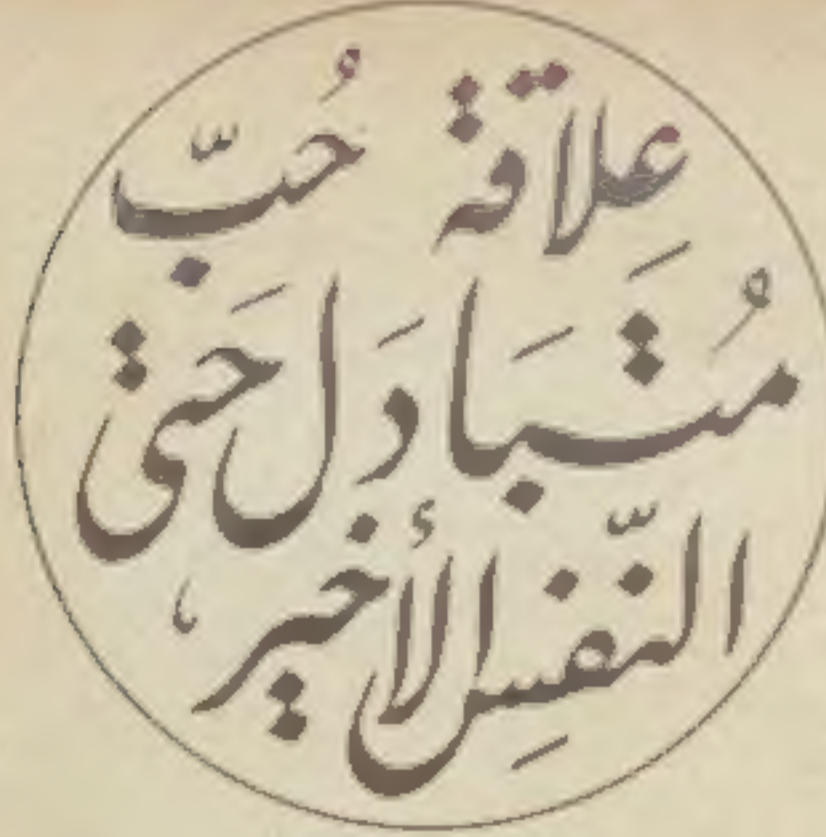 عِلاقة حُبّ
مُتَبَادَل حَتى
النّفسِ الأخير